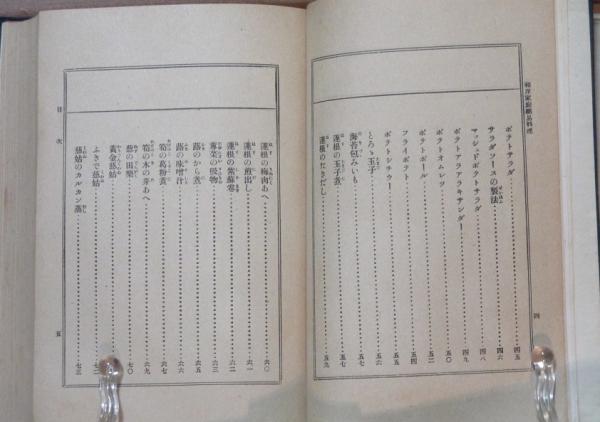 和洋家庭惣菜料理
ポテトサラダ……四五
サラダソースの製法……四六
マッシュドポテトサラダ……四八
ポテトアラアラキサンダー……四九
ポテトオムレツ……五〇
ポテトボール……五二
フライポテト……五四
ポテトシチウー……五五
とろゝ玉子……五六
海苔包みいも……五七
蓮根の玉子煮……五七
蓮根のたきだし……五九
四
蓮根の梅肉あへ……六〇
蓮根の煎出し……六一
蓮根の紫蘇巻……六二
蓴菜の吸物……六三
蕗のから煮……六五
蕗の味噌汁……六六
筍の葛粉煮……六八
筍の木の芽あへ……六九
筍の田樂……七〇
黄金慈姑
ふきで慈姑
慈姑のカルカン蒸……七三
目次
五